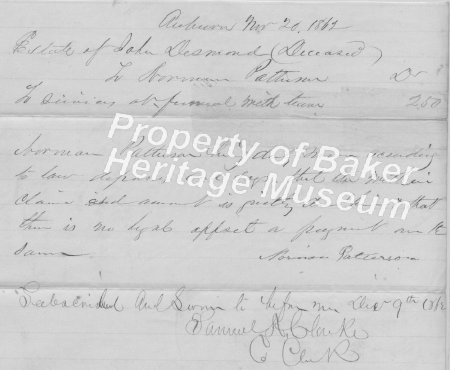 Auburn Nov 20, 1862
Estate of John Desmond (Deceased)
To Norman Patterson Dr
To services at funeral with team 250
Norman Patterson being duly sworn according
to law deposes that the within
claim and amount is justly due and that
there is no legal offset or payment on the
same. Norman Patterson
Subscribed and Sworn to before me Decr 9th 1862
Samuel A. Clarke
C Clerk
Property of Baker
Heritage Museum